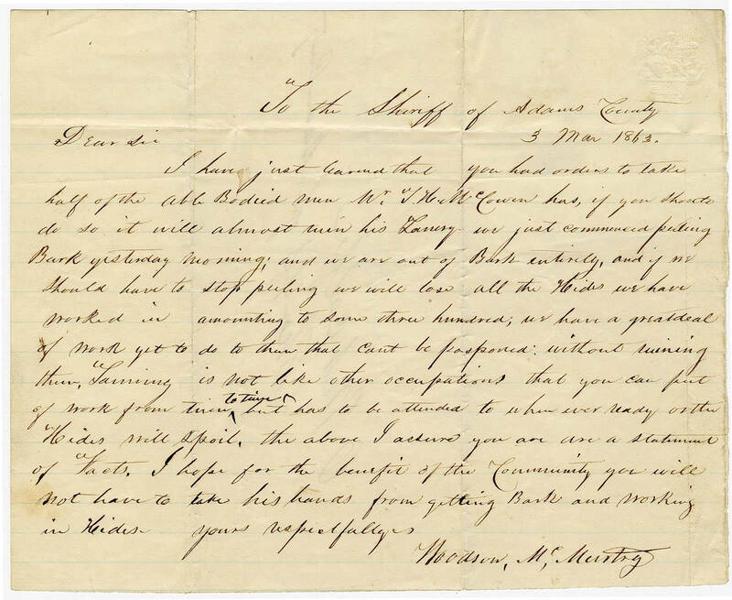 To the Shiriff of Adams County
3 Mar 1863.
Dear Sir
I have just learned that you had orders to take
half of the able Bodied men Mr. T H McCowen has, if you should
do so it will almost ruin his Tanery we just commenced peeling
Bark yesterday morning; and we are out of Bark entirely, and if we
should have to stop peeling we will lose all the Hides we have
worked in amounting to some three hundred; we have a greatdeal
of work yet to do to them that cant be posponed: without ruining
them, Tanning is not like other occupations that you can put
of work from time to time but has to be attended to when ever ready or the
Hides will spoil. the above I assure you are are a statement
of Facts. I hope for the benefit of the Community you will
not have to take his hands from getting Bark and working
in Hides- yours respectfully
Woodson, Mc, Murtry